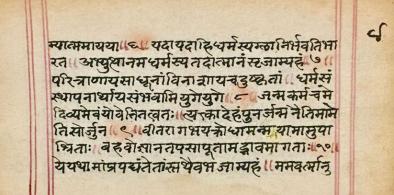 म्यात्ममायया ॥६ यदायदाहिधर्मस्यग्लानिर्भवतिभा
रत अभ्युत्थानमधर्मस्यतदात्मानंसृजाम्यहं ॥७॥
परित्राणायसाधूनांविनाशायचदुष्कृतां धर्मसं
स्थापनार्थायसंभवामियुगेयुगे ॥८ जन्मकर्मचमे
दिव्यमेवंयोवेत्तितत्त्वतः ॥ त्यक्त्वादेहंपुनर्जन्मनैतिमामे
तिसोर्जुन ९ वीतरागभयक्रोधामन्मयामामुपा
श्रिताः बहवोज्ञानतपसापूतामद्भावमागताः ॥१०
येयथामांप्रपद्यंतेतांस्तथैवभजाम्यहं ॥ ममवर्त्मानु